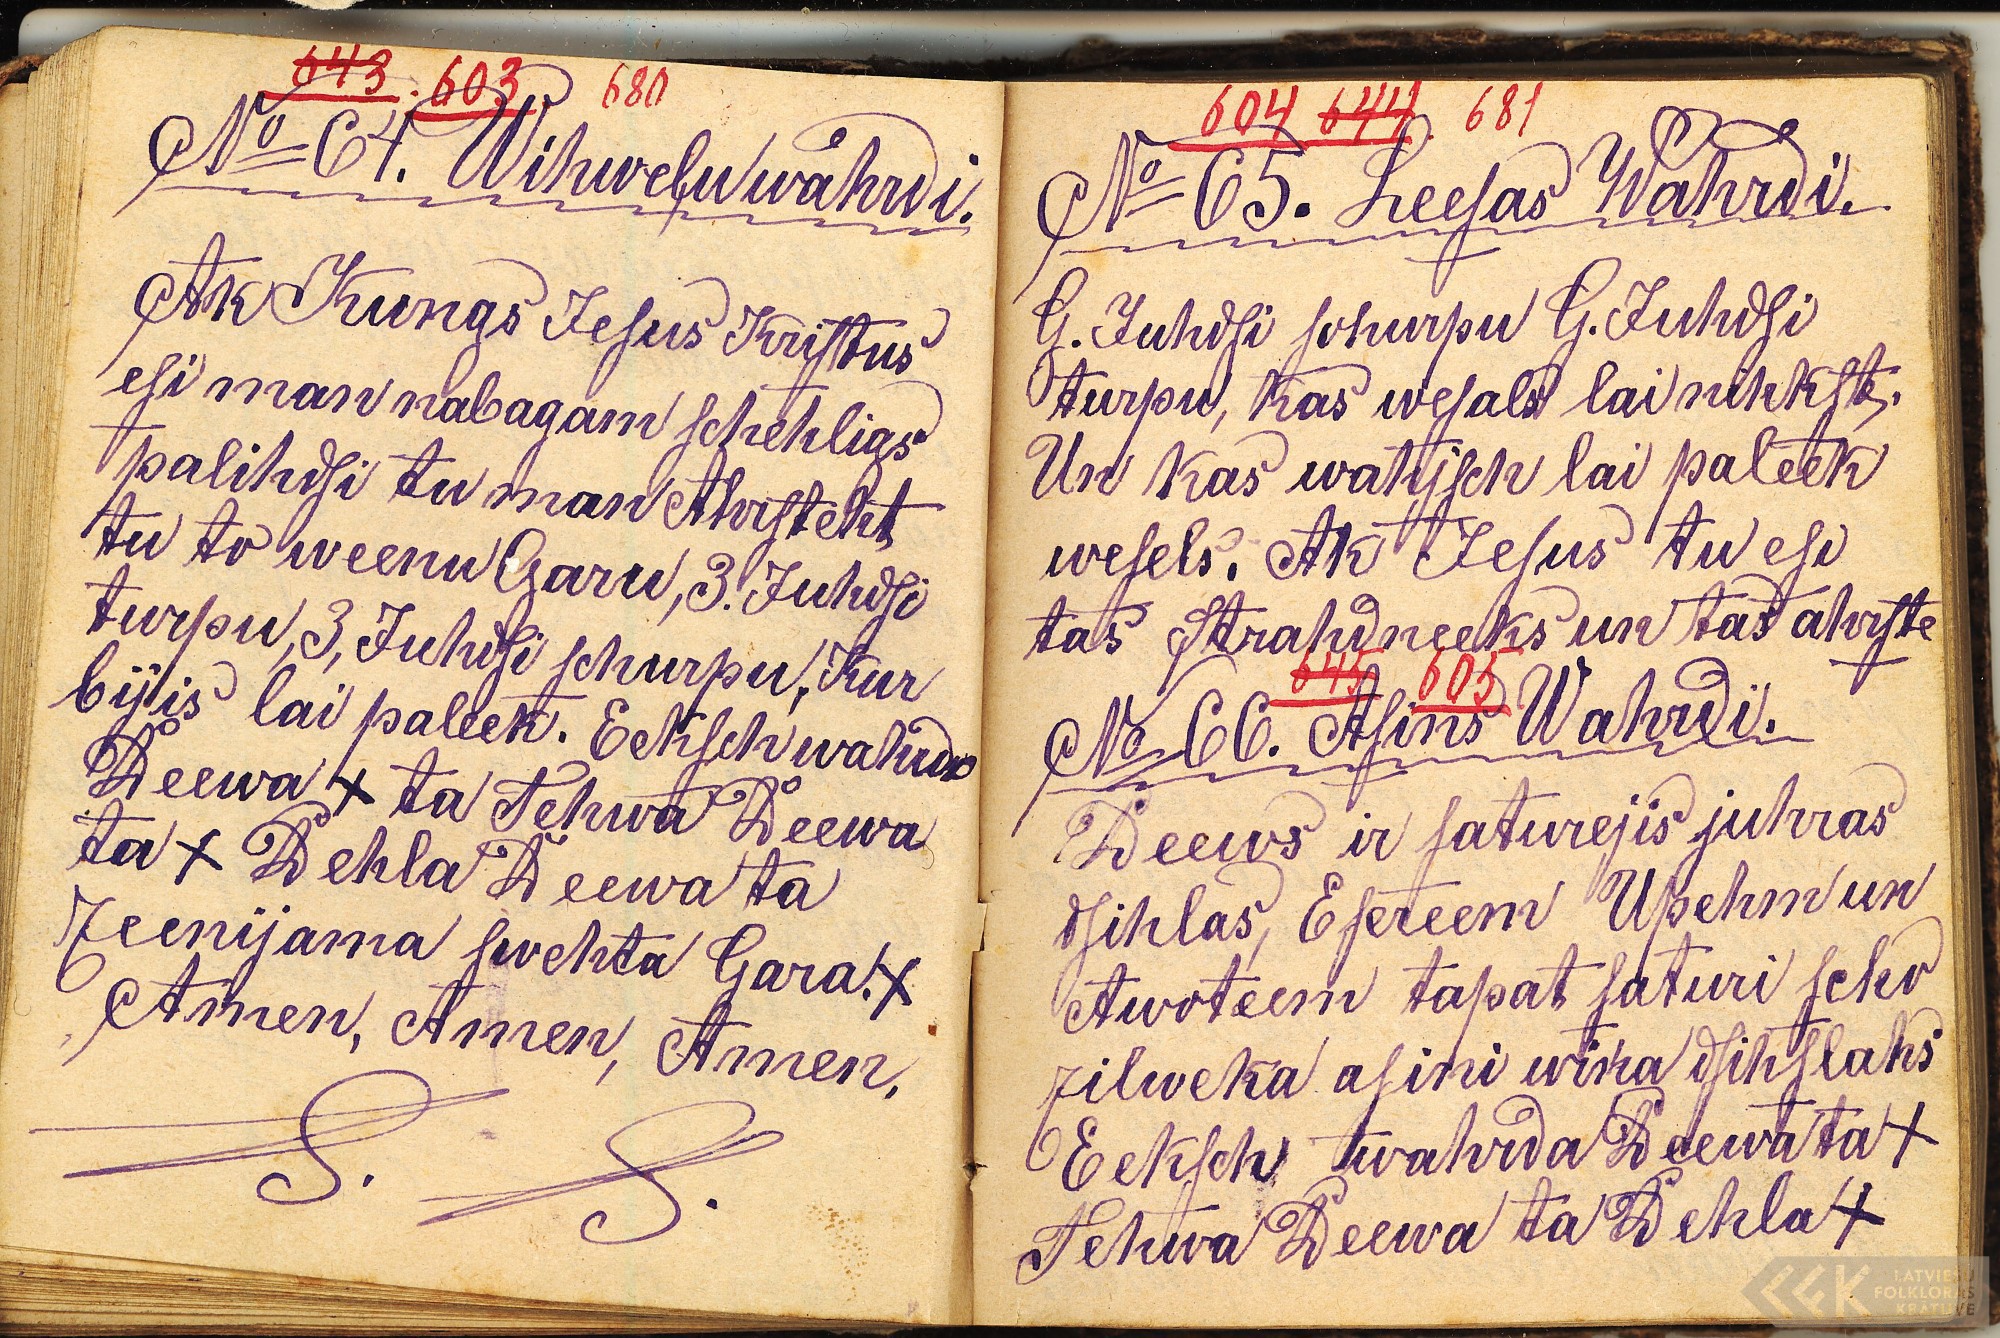 643. 603 680
No 64. Wihwelu wahrdi.
Ak Kungs Jesus Kristus
esi man nabagam schehligs
palihdsi tu man Ahrsteht
tu to weenu Garu, 3. Juhdsi
turpu, 3, Juhdsi schurpu, Kur
bijis lai paleek. Eeksch wahrda
Deewa + ta Tehwa Deewa
ta + Dehla Deewa ta
zeenijama swehta Gara. +
Amen, Amen, Amen,
S. S.
604 644. 681
No 65. Leesas Wahrdi.
G. Juhdsi schurpu G. Juhdsi
turpu, Kas wesals lai nihkst,
Un kas wahjsch lai paleek
wesels. Ak Jesus tu esi
tas Strahdneeks un tas ahrste
645 605
No 66. Asins Wahrdi.
Deews ir saturejis juhras
dsihlas, Esereem Upehm un
Awoteem tapat saturi scho
zilweka asini wina dsihslahs
Eeksch wahrda Deewa ta +
Tehwa Deewa ta Dehla +
LATVIEŠU
FOLKLORAS
KRĀTUVE